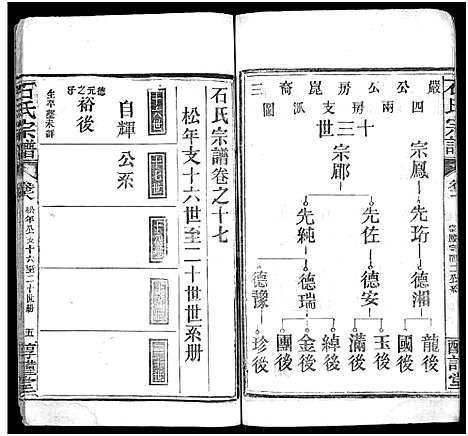 石氏宗譜
嚴四公兩房崑支裔圖三
十三世
宗鳳
先珩
德湘
龍後
國後
宗郿
先佐
德安
玉後
滿後
先純
德瑞
綽後
金後
團後
德豫
珍後
石氏宗譜卷之十七
松年支十六世至二十世世系册
十六世
十七世
十八世
十九世
二十世
自輝
公系
德元之子
裕後
生卒葬未詳
石氏宗譜
松年公支十六至二十世册
五